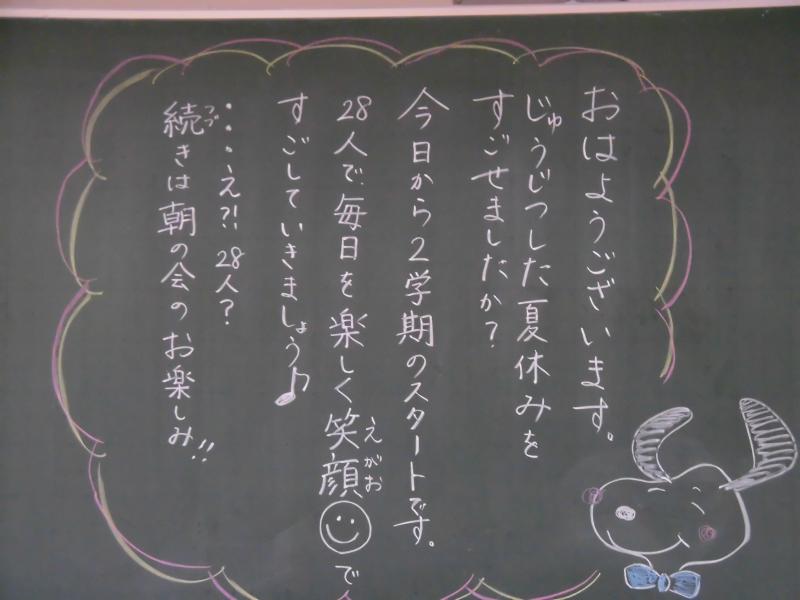 おはようございます。
じゅうじつした夏休みを
すごせましたか?
今日から2学期のスタートです。
28人で、毎日を楽しく笑顔で
えがお
すごしていきましょう♪
・・・・え?!28人?
続きは朝の会のお楽しみ!!
つづ